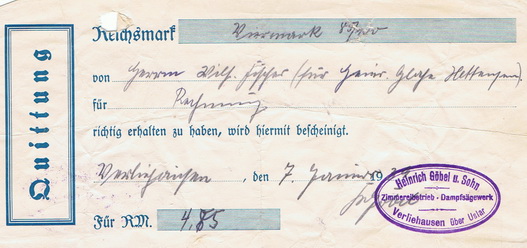 Quittung
Reichsmark Viermark 85/100
von Herrn Wilh. Fischer (für Heinr. Glahe Hettensen)
für Rechnung
richtig erhalten zu haben, wird hiermit bescheinigt.
Verliehausen, den 7. Januar 19
Für RM. 4,85
Heinrich Göbel u. Sohn
Zimmereibetrieb - Dampfsägewerk
Verliehausen über Uslar